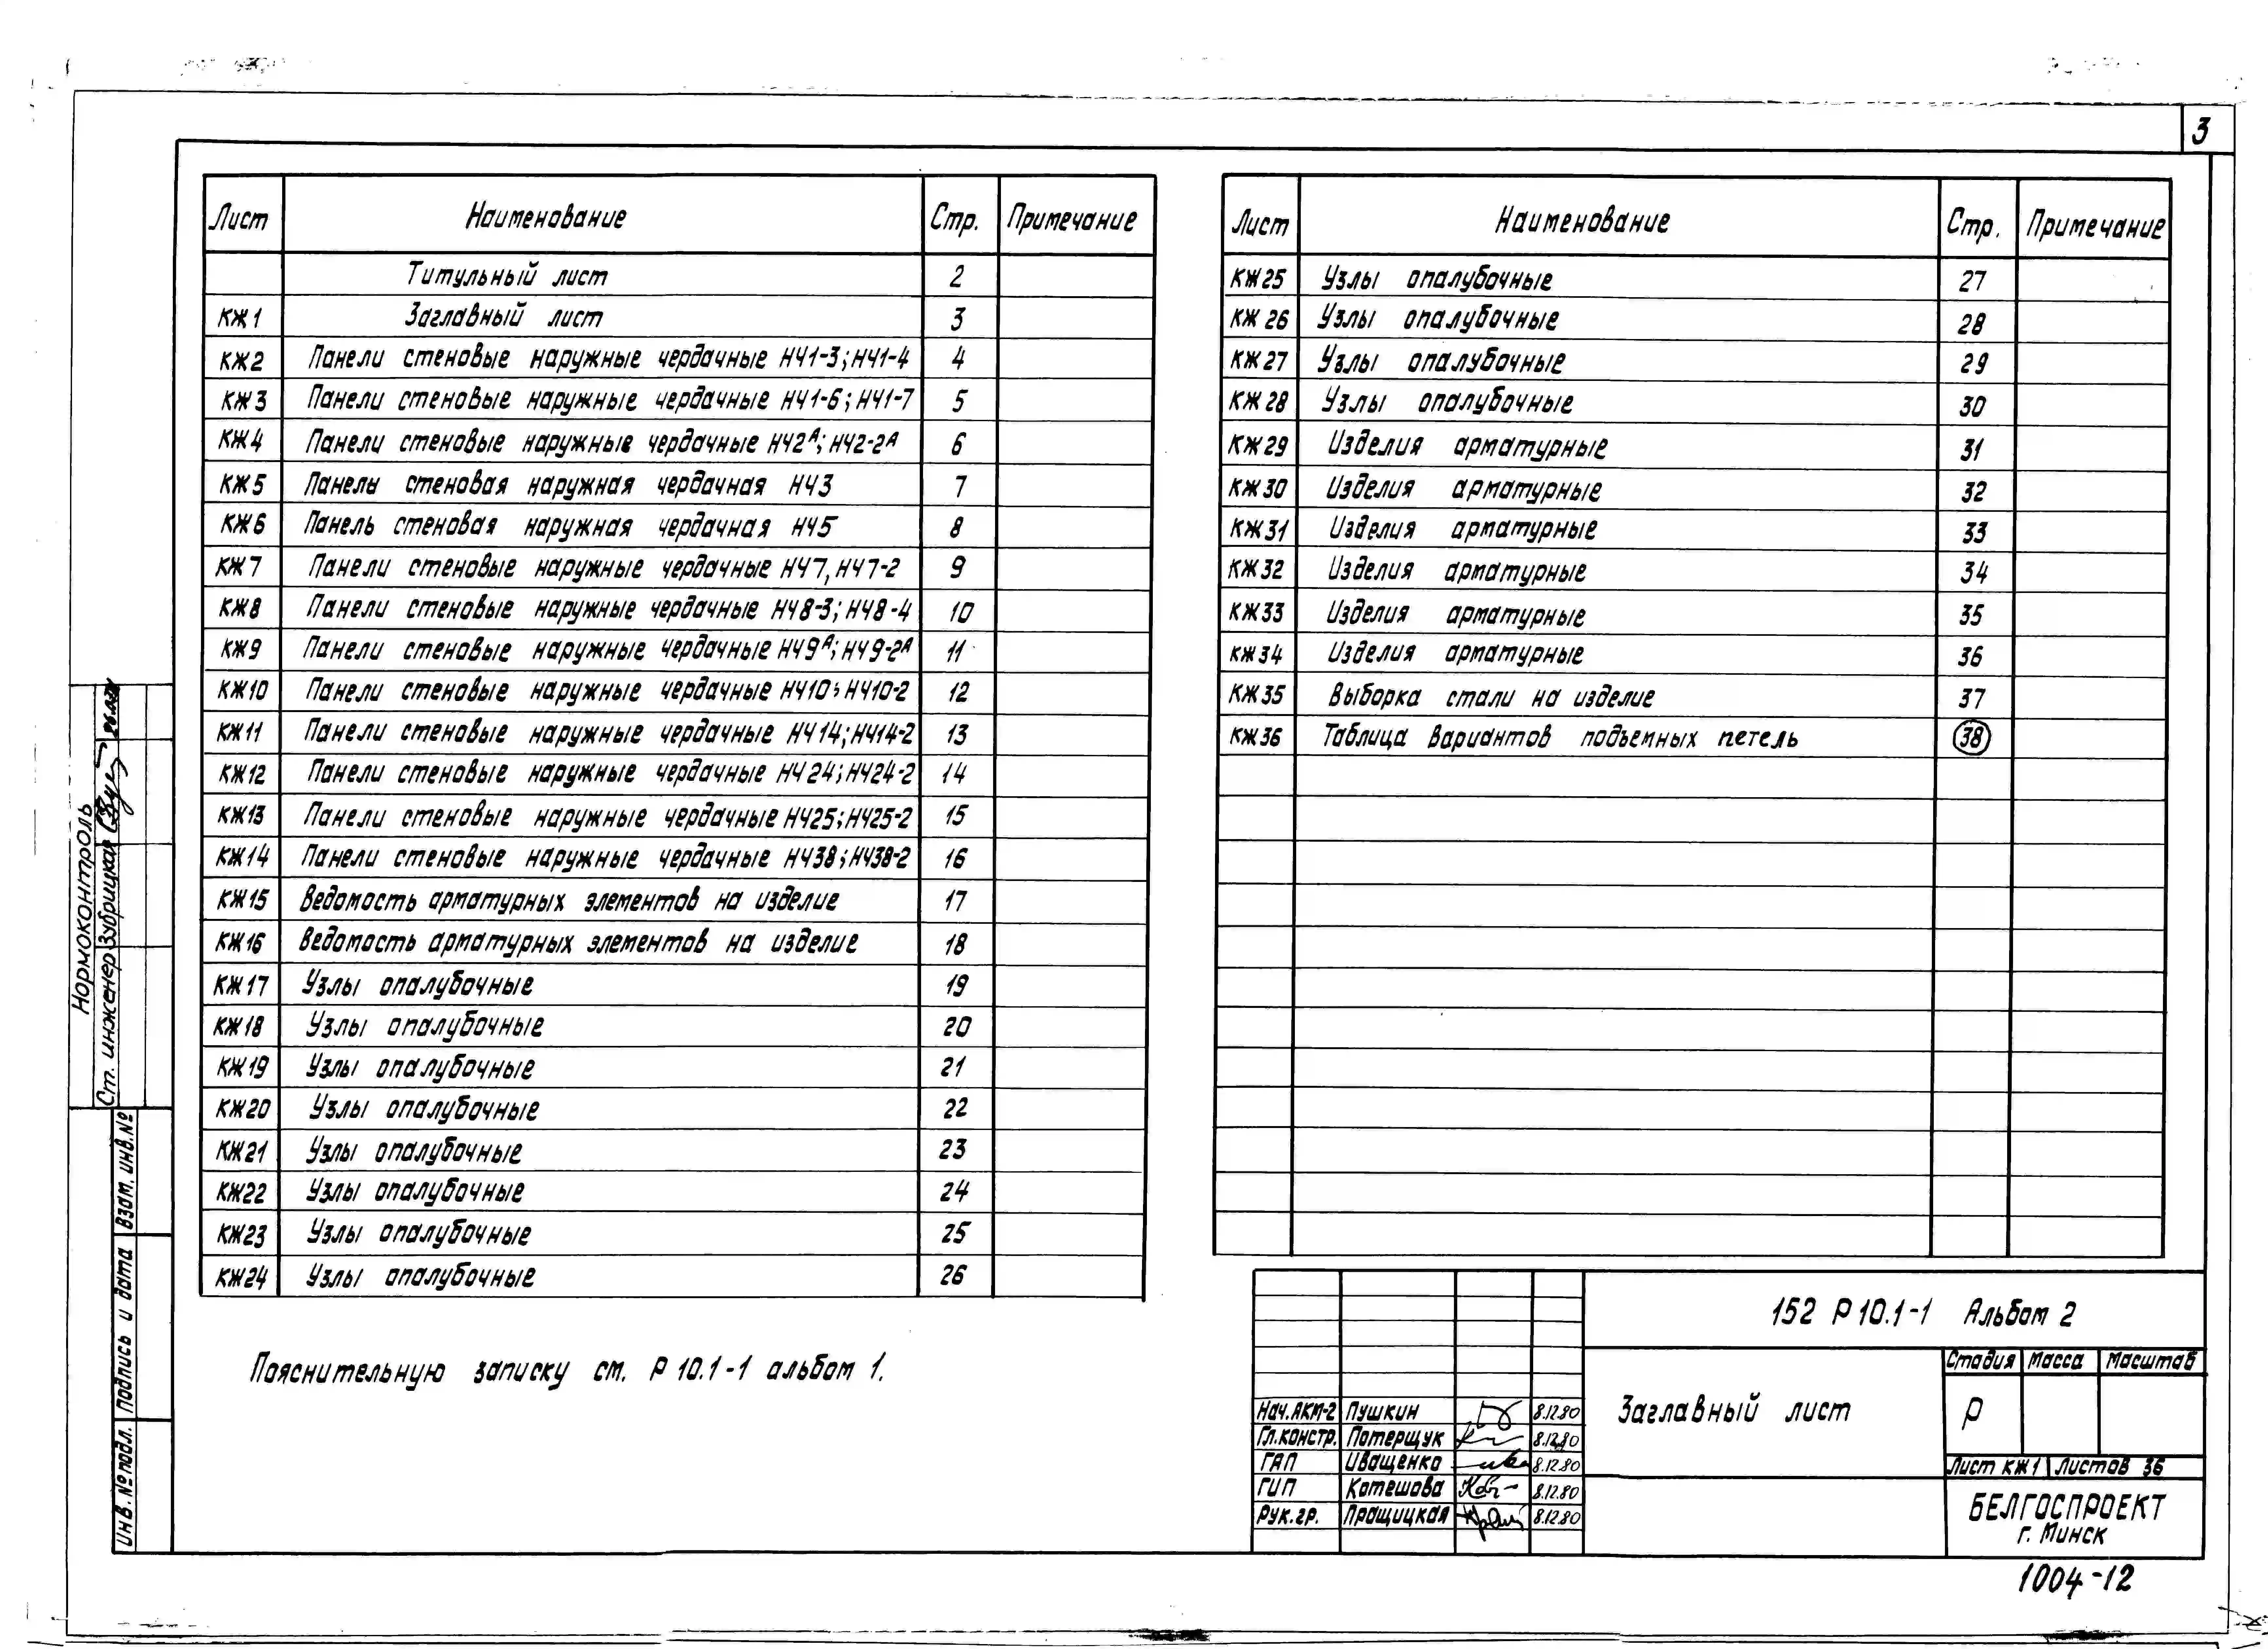 3
Лист Наименование Стр. Примечание
Титульный лист 2
КЖ1 Заглавный лист 3
КЖ2 Панели стеновые наружные чердачные НЧ1-3; НЧ1-4 4
КЖ3 Панели стеновые наружные чердачные НЧ1-6; НЧ1-7 5
КЖ4 Панели стеновые наружные чердачные НЧ2А; НЧ2-2А 6
КЖ5 Панель стеновая наружная чердачная НЧ3 7
КЖ6 Панель стеновая наружная чердачная НЧ5 8
КЖ7 Панели стеновые наружные чердачные НЧ7, НЧ7-2 9
КЖ8 Панели стеновые наружные чердачные НЧ8-3; НЧ8-4 10
КЖ9 Панели стеновые наружные чердачные НЧ9А; НЧ9-2А 11
КЖ10 Панели стеновые наружные чердачные НЧ10; НЧ10-2 12
КЖ11 Панели стеновые наружные чердачные НЧ14; НЧ14-2 13
КЖ12 Панели стеновые наружные чердачные НЧ24; НЧ24-2 14
КЖ13 Панели стеновые наружные чердачные НЧ25; НЧ25-2 15
КЖ14 Панели стеновые наружные чердачные НЧ38; НЧ38-2 16
КЖ15 Ведомость арматурных элементов на изделие 17
КЖ16 Ведомость арматурных элементов на изделие 18
КЖ17 Узлы опалубочные 19
КЖ18 Узлы опалубочные 20
КЖ19 Узлы опалубочные 21
КЖ20 Узлы опалубочные 22
КЖ21 Узлы опалубочные 23
КЖ22 Узлы опалубочные 24
КЖ23 Узлы опалубочные 25
КЖ24 Узлы опалубочные 26
Пояснительную записку см. Р 10.1-1 альбом 1.
Лист Наименование Стр. Примечание
КЖ25 Узлы опалубочные 27
КЖ26 Узлы опалубочные 28
КЖ27 Узлы опалубочные 29
КЖ28 Узлы опалубочные 30
КЖ29 Изделия арматурные 31
КЖ30 Изделия арматурные 32
КЖ31 Изделия арматурные 33
КЖ32 Изделия арматурные 34
КЖ33 Изделия арматурные 35
КЖ34 Изделия арматурные 36
КЖ35 Выборка стали на изделие 37
КЖ36 Таблица вариантов подъемных петель 38
152 Р 10.1-1 Альбом 2
Заглавный лист
Стадия Масса Масштаб
Р
Лист КЖ1 Листов 36
БЕЛГОСПРОЕКТ
г. Минск
Нач.АКМ-2 Пушкин 8.12.80
Гл.констр. Потерщук 8.12.80
ГАП Иващенко 8.12.80
ГИП Котешова 8.12.80
Рук.гр. Пращицкая 8.12.80
1004-12
Нормоконтроль
Ст. инженер Зубрицкая
Взам. инв. №
Подпись и дата
Инв. № подл.